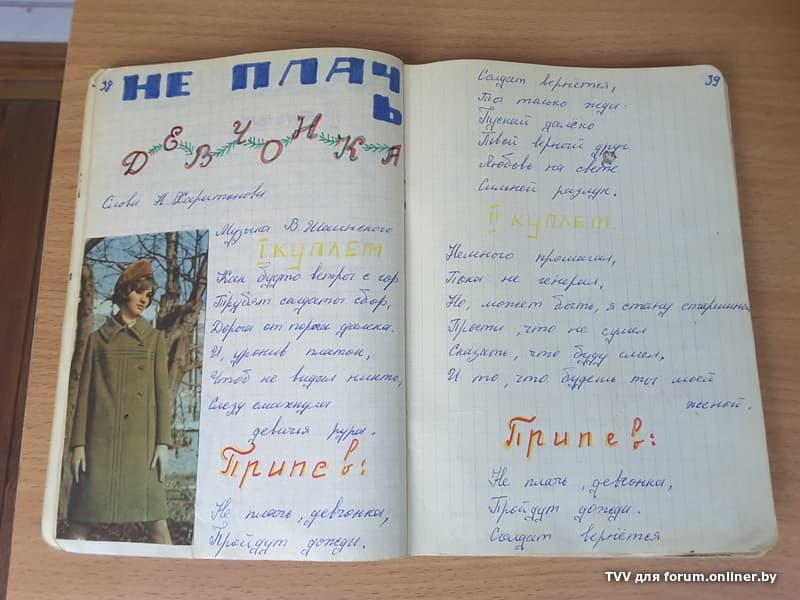 38
НЕ ПЛАЧЬ
ДЕВЧОНКА
Слова Н. Харитонова
Музыка В. Шаинского
I КУПЛЕТ
Как будто ветры с гор
Трубят солдаты сбор,
Дорога от порога далека.
И, уронив платок,
Чтоб не видел никто,
Слезу смахнула
девичья рука.
Припев:
Не плачь, девчонка,
Пройдут дожди.
39
Солдат вернётся,
Ты только жди.
Пускай далеко
Твой верный друг
Любовь на свете
Сильней разлук.
II КУПЛЕТ
Немного прошагал,
Пока не генерал,
Но, может быть, я стану старшина
Прости, что не сумел
Сказать, что буду смел,
И то, что будешь ты моей
женой.
Припев:
Не плачь, девчонка,
Пройдут дожди.
Солдат вернётся
TVV для forum.onliner.by